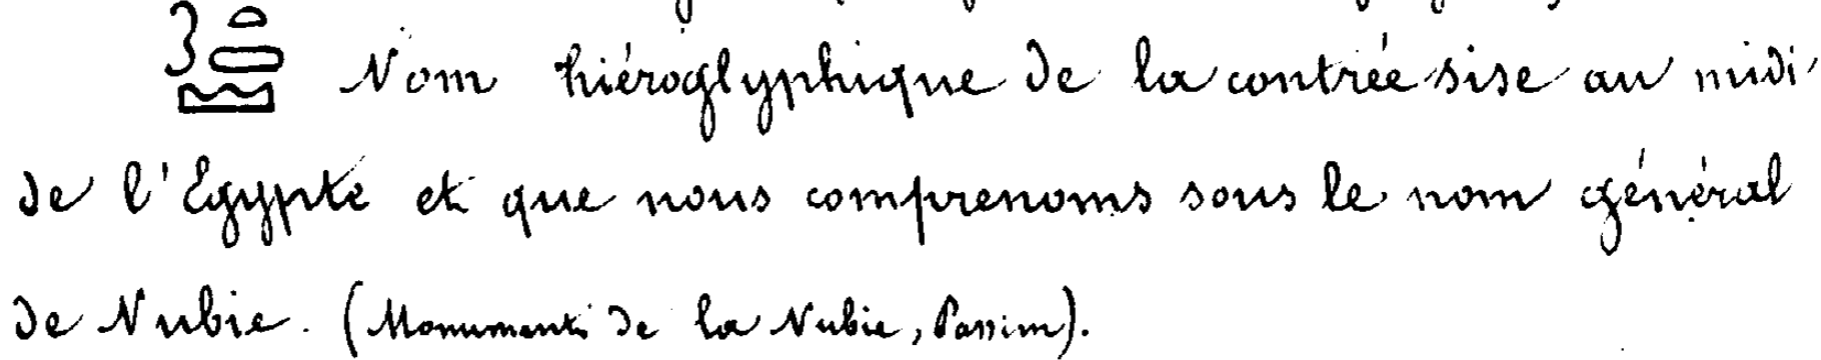 Nom hiéroglyphique de la contrée sise au midi
de l'Egypte et que nous comprenons sous le nom général
de Nubie. (Monuments de la Nubie, Passim).